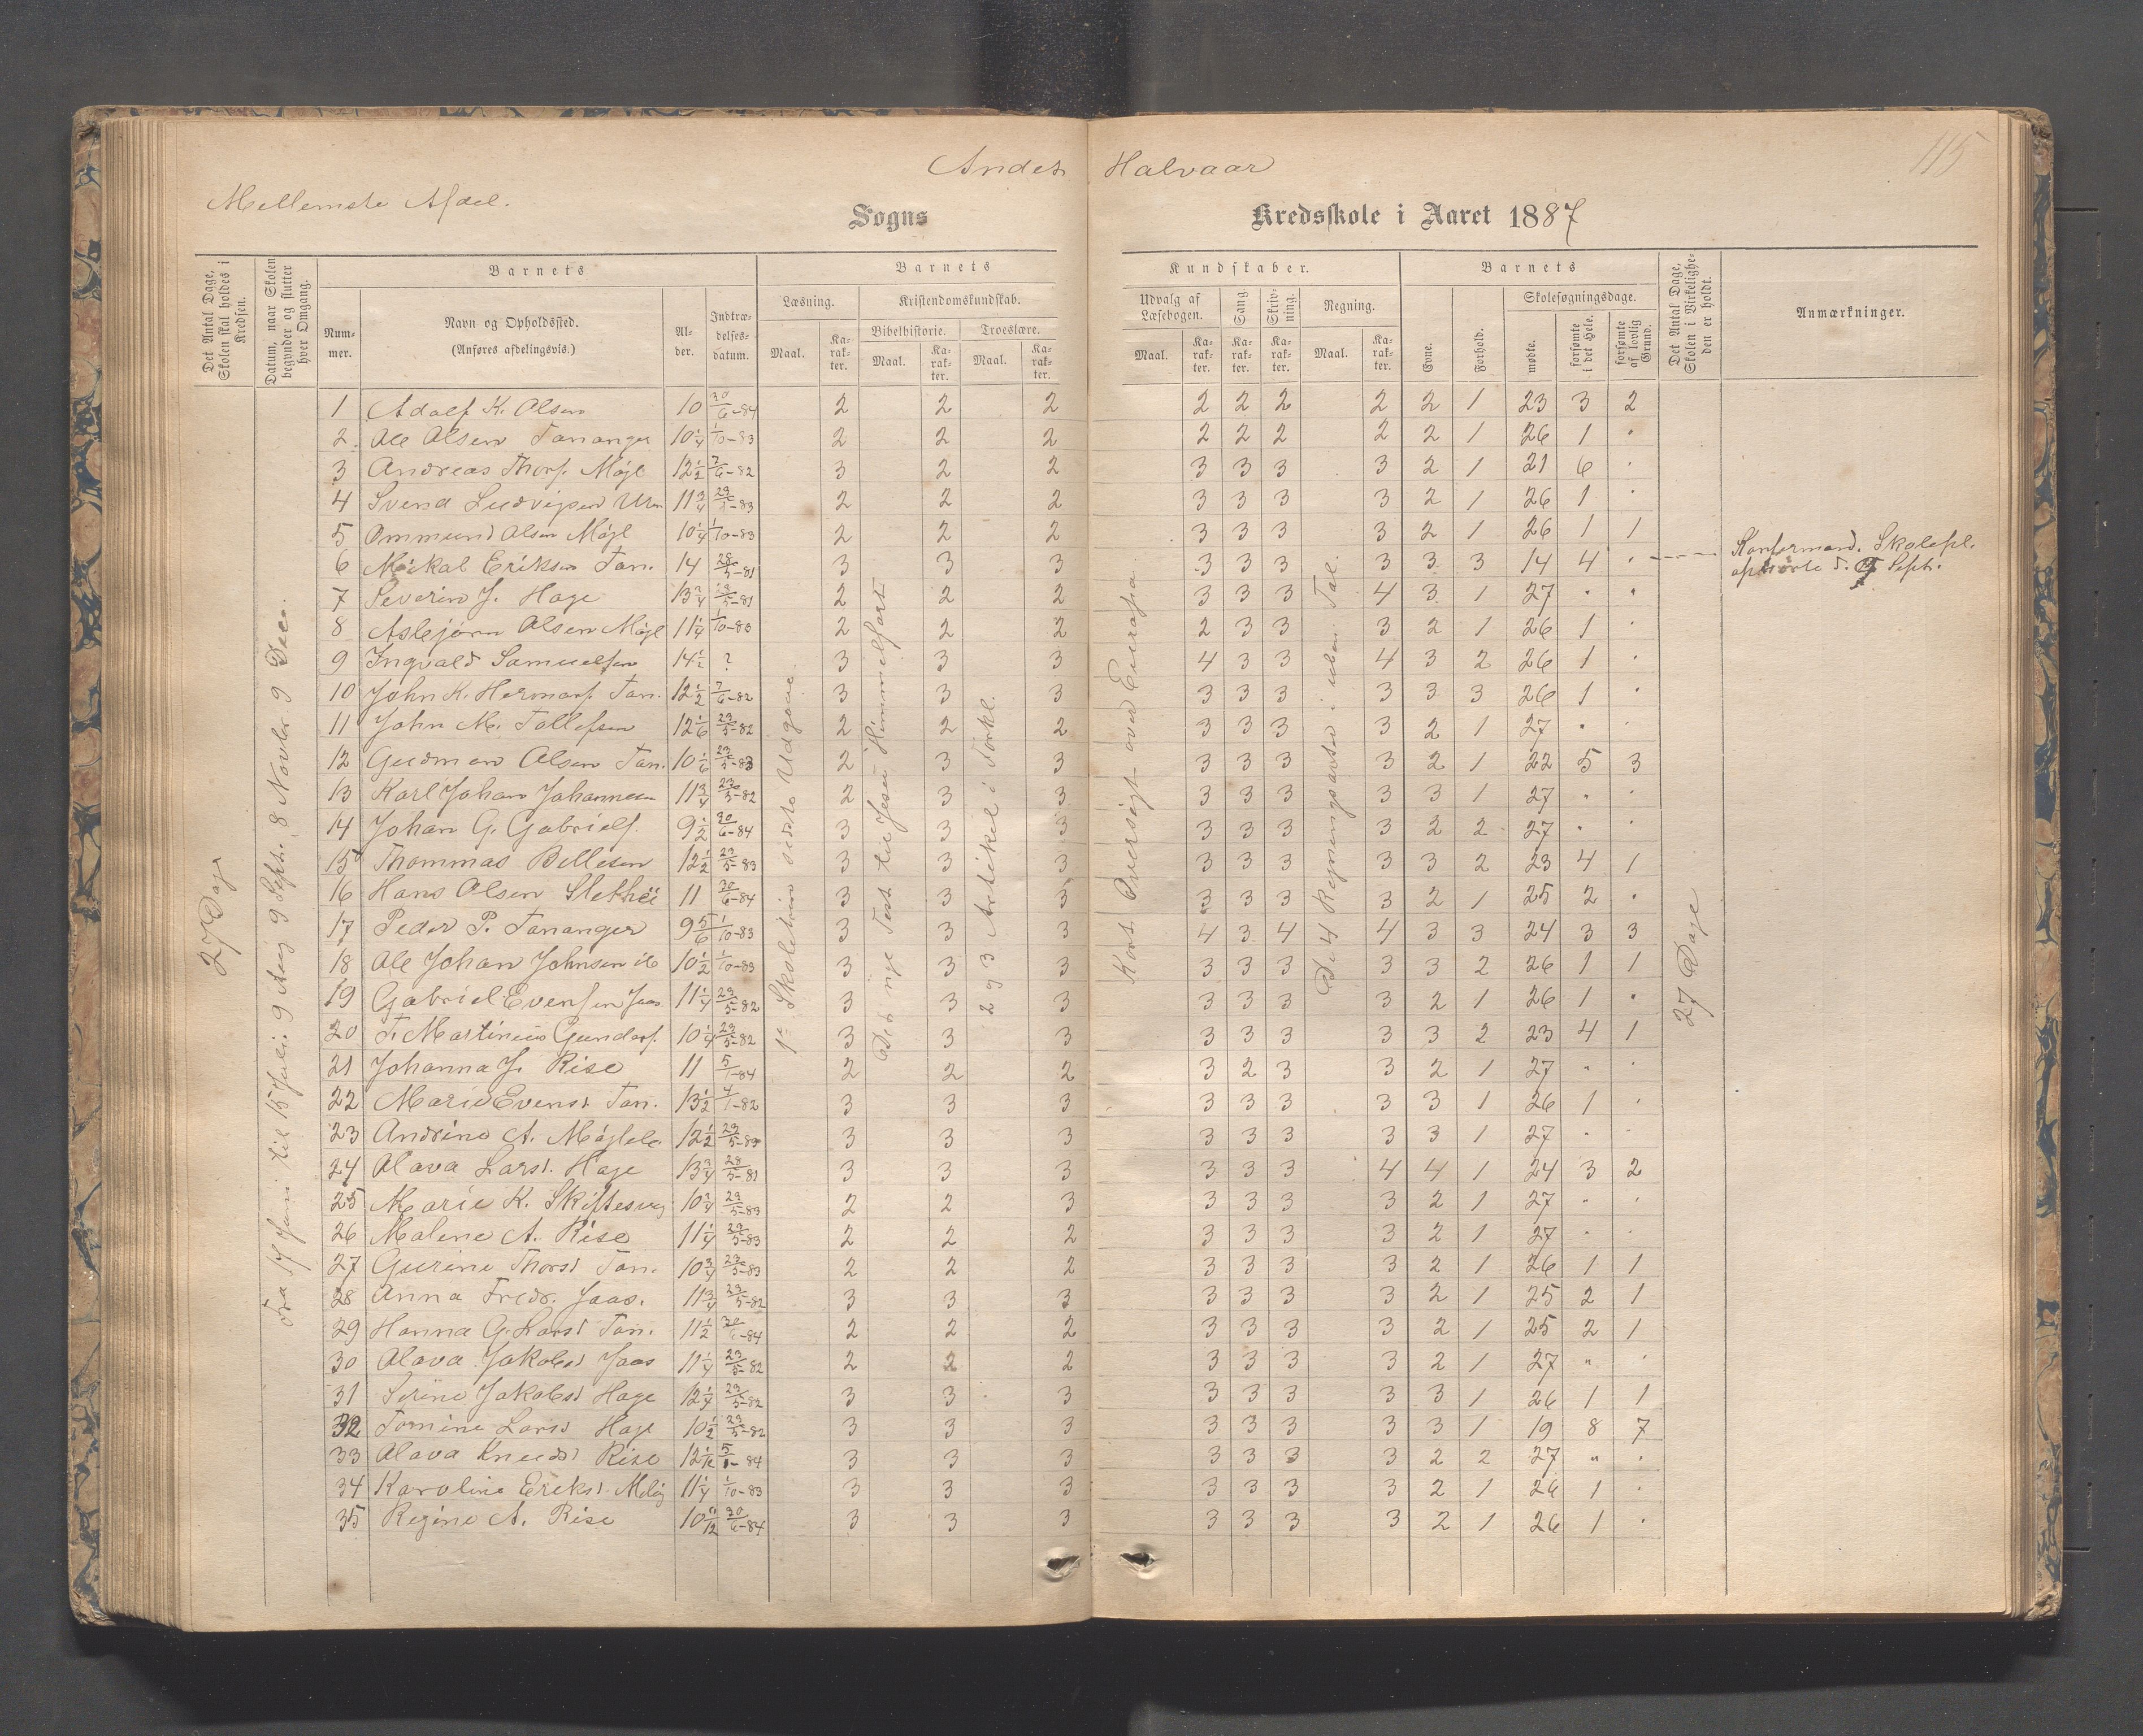 115
Andet Halvaar
Mellemste Afdel.
Sogns Kredsskole i Aaret 1887
Det Antal Dage, Skolen skal holdes i Kredsen.
Datum, naar Skolen begynder og slutter hver Omgang.
Barnets
Num-mer.
Navn og Opholdssted.
(Anføres afdelingsvis.)
Al-der.
Indtræ-delses-datum.
Barnets
Læsning.
Kristendomskundskab.
Bibelhistorie.
Troeslære.
Maal.
Ka-rak-ter.
Maal.
Ka-rak-ter.
Maal.
Ka-rak-ter.
Kundskaber.
Udvalg af Læsebogen.
Sang.
Skriv-ning.
Regning.
Maal.
Ka-rak-ter.
Ka-rak-ter.
Ka-rak-ter.
Maal.
Ka-rak-ter.
Barnets
Evne.
Forhold.
Skolesøgningsdage.
mødte.
forsømte i det Hele.
forsømte af lovlig Grund.
Det Antal Dage, Skolen i Virkelighe-den er holdt.
Anmærkninger.
27 Dage
Fra 17 Juni til 15 Juli. 9 Aug 9 Sept. 8 Novbr. 9 Dec.
1ste Skoletrin sidste Udgave.
Det nye Test til Jesu Himmelfart
2 og 3 Artikel i Forkl.
Kort Oversigt over Europa.
De 4 Regningsarter i uben. Tal.
27 Dage
1 Adolf K. Olsen 10 30/6-84 2 2 2 2 2 2 2 2 1 23 3 2
2 Ole Olsen Tananger 10 1/4 1/10-83 2 2 2 2 2 2 2 2 1 26 1 .
3 Andreas Thors. Møgl 12 1/2 7/6-82 3 2 2 3 3 3 3 2 1 21 6 .
4 Svend Ludvigsen 11 3/4 23/5-83 2 2 2 3 3 3 3 2 1 26 1 .
5 Ommund Olsen Møgl 10 1/4 1/10-83 2 2 2 3 3 3 3 2 1 26 1 1
6 Mikal Eriksen Tan. 14 28/5-81 3 3 3 3 3 3 3 3 3 14 4 . Konfirmand. Skolepl. ophørte d. Septr.
7 Severin J. Hage 13 3/4 23/5-81 2 2 2 3 3 3 4 3 1 27 " "
8 Asbjørn Olsen Møgl 11 1/4 1/10-83 2 2 2 2 3 3 3 2 1 26 1 .
9 Ingvald Samuelsen 14 1/2 ? 3 3 3 4 3 3 4 3 2 26 1 .
10 John K. Hermans. Tan. 12 1/2 7/6-82 3 3 3 3 3 3 3 3 3 26 1 .
11 John M. Tollefsen 12 1/6 23/5-82 2 2 2 3 3 3 3 2 1 27 " .
12 Gudmon Olsen Tan. 10 1/6 23/5-83 2 3 3 3 3 3 3 2 1 22 5 3
13 Karl Johan Johannesen 11 3/4 23/5-82 2 3 3 3 3 3 3 3 1 27 " .
14 Johan G. Gabriels. 9 1/2 30/6-84 3 3 3 3 3 3 3 2 2 27 . .
15 Thommas Bellesen 12 1/2 23/5-83 3 3 3 3 3 3 3 3 2 23 4 1
16 Hans Olsen Slethei 11 30/6-84 3 3 3 3 3 3 3 2 1 25 2 .
17 Peder P. Tananger 9 5/6 1/10-83 3 3 3 4 3 4 4 3 3 24 3 3
18 Ole Johan Johnsen 10 1/2 1/10-83 3 3 3 3 3 3 3 3 2 26 1 1
19 Gabriel Evensen Jaas. 11 1/4 23/5-82 3 3 3 3 3 3 3 2 1 26 1 .
20 T. Martinius Gunders. 10 1/4 23/5-82 3 3 3 3 3 3 3 3 2 23 4 1
21 Johanna J. Rise 11 5/1-84 2 2 2 3 2 3 3 2 1 27 " .
22 Marie Evensd. Tan. 13 1/2 4/1-82 3 3 3 3 3 3 3 3 1 26 1 .
23 Andrine A. Møglebr. 12 1/2 23/5-83 3 3 3 3 3 3 3 3 1 27 . .
24 Olava Larsd. Hage 13 3/4 28/5-81 3 3 3 3 3 3 4 4 1 24 3 2
25 Marie K. Skiftesvig 10 3/4 23/5-83 2 2 3 3 3 3 3 2 1 27 . .
26 Malene A. Rise 11 1/4 23/5-83 2 2 2 3 3 3 3 2 1 27 . .
27 Gurine Thorsd Tan. 10 3/4 23/5-83 2 2 2 3 3 3 3 2 1 26 1 1
28 Anna Fredr. Jaas. 11 3/4 23/5-82 3 3 3 3 3 3 3 2 1 25 2 1
29 Hanna G. Larsd Tan. 11 1/2 30/6-84 2 2 2 3 3 3 3 2 1 25 2 1
30 Olava Jakobsd Jaas 11 1/4 23/5-82 2 2 2 3 3 3 3 2 1 27 " .
31 Serine Jakobsd Hage 12 1/4 23/5-82 3 3 3 3 3 3 3 3 1 26 1 1
32 Tomine Larsd Hage 10 1/2 23/5-82 3 3 3 3 3 3 3 3 1 19 8 7
33 Olava Knudsd Rise 12 5/1-84 3 3 3 3 3 3 3 2 2 27 " .
34 Karoline Eriksd. 11 1/4 1/10-83 3 3 3 3 3 3 3 2 1 26 1 .
35 Regine A. Rise 10 30/6-84 3 3 3 3 3 3 3 2 1 26 1 .